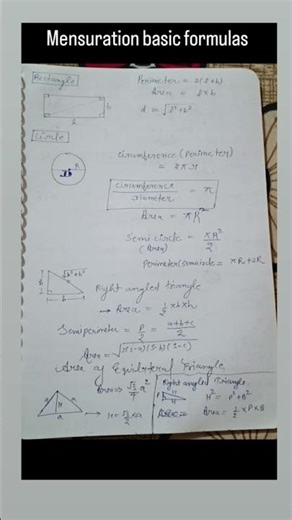 Mensuration basic formulas
Rectangle
Perimeter = 2(l+b)
Area = l×b
d = √l²+b²
b
l
Circle
R
Circumference (Perimeter)
= 2πr
Circumference / Diameter = π
Area = πR²
Semi circle = πR²/2
(Area)
Perimeter(semicircle = πR+2R
√h²+b²
h
b
Right angled triangle
→ Area = 1/2 ×b×h
Semiperimeter = P/2 = a+b+c/2
Area = √s(s-a)(s-b)(s-c)
Area of Equilateral Triangle
Area = √3/4 a²
a
H
a
a
→ H = √3/2 ×a
Right angled Triangle
P
H
H² = P²+B²
Area = 1/2 ×P×B